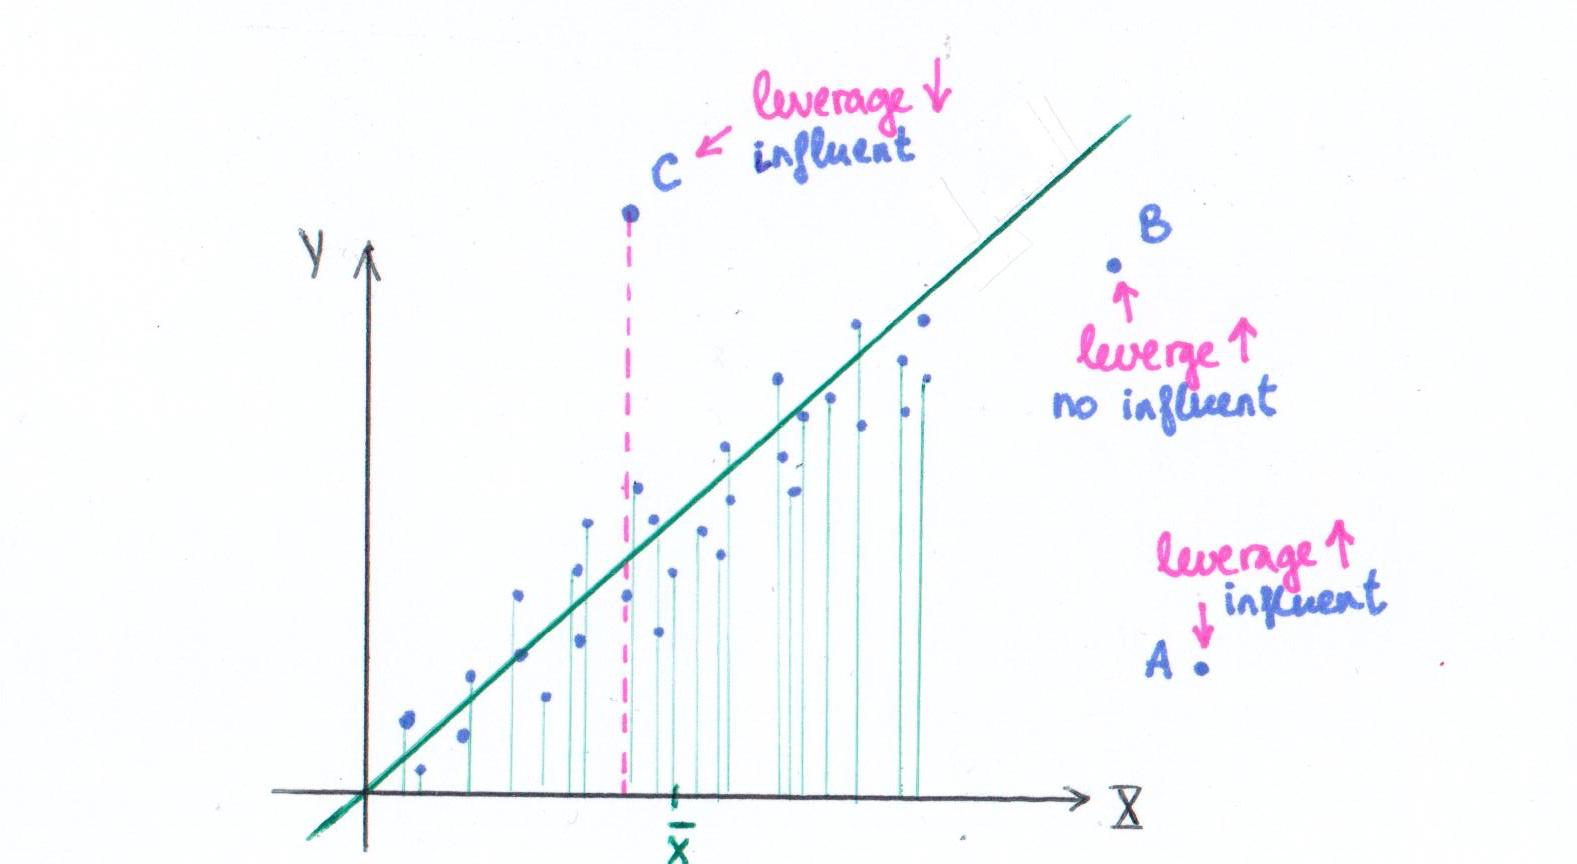 leverage ↓
influent
C
B
Y
leverge ↑
no influent
leverage ↑
influent
A
X
x̄